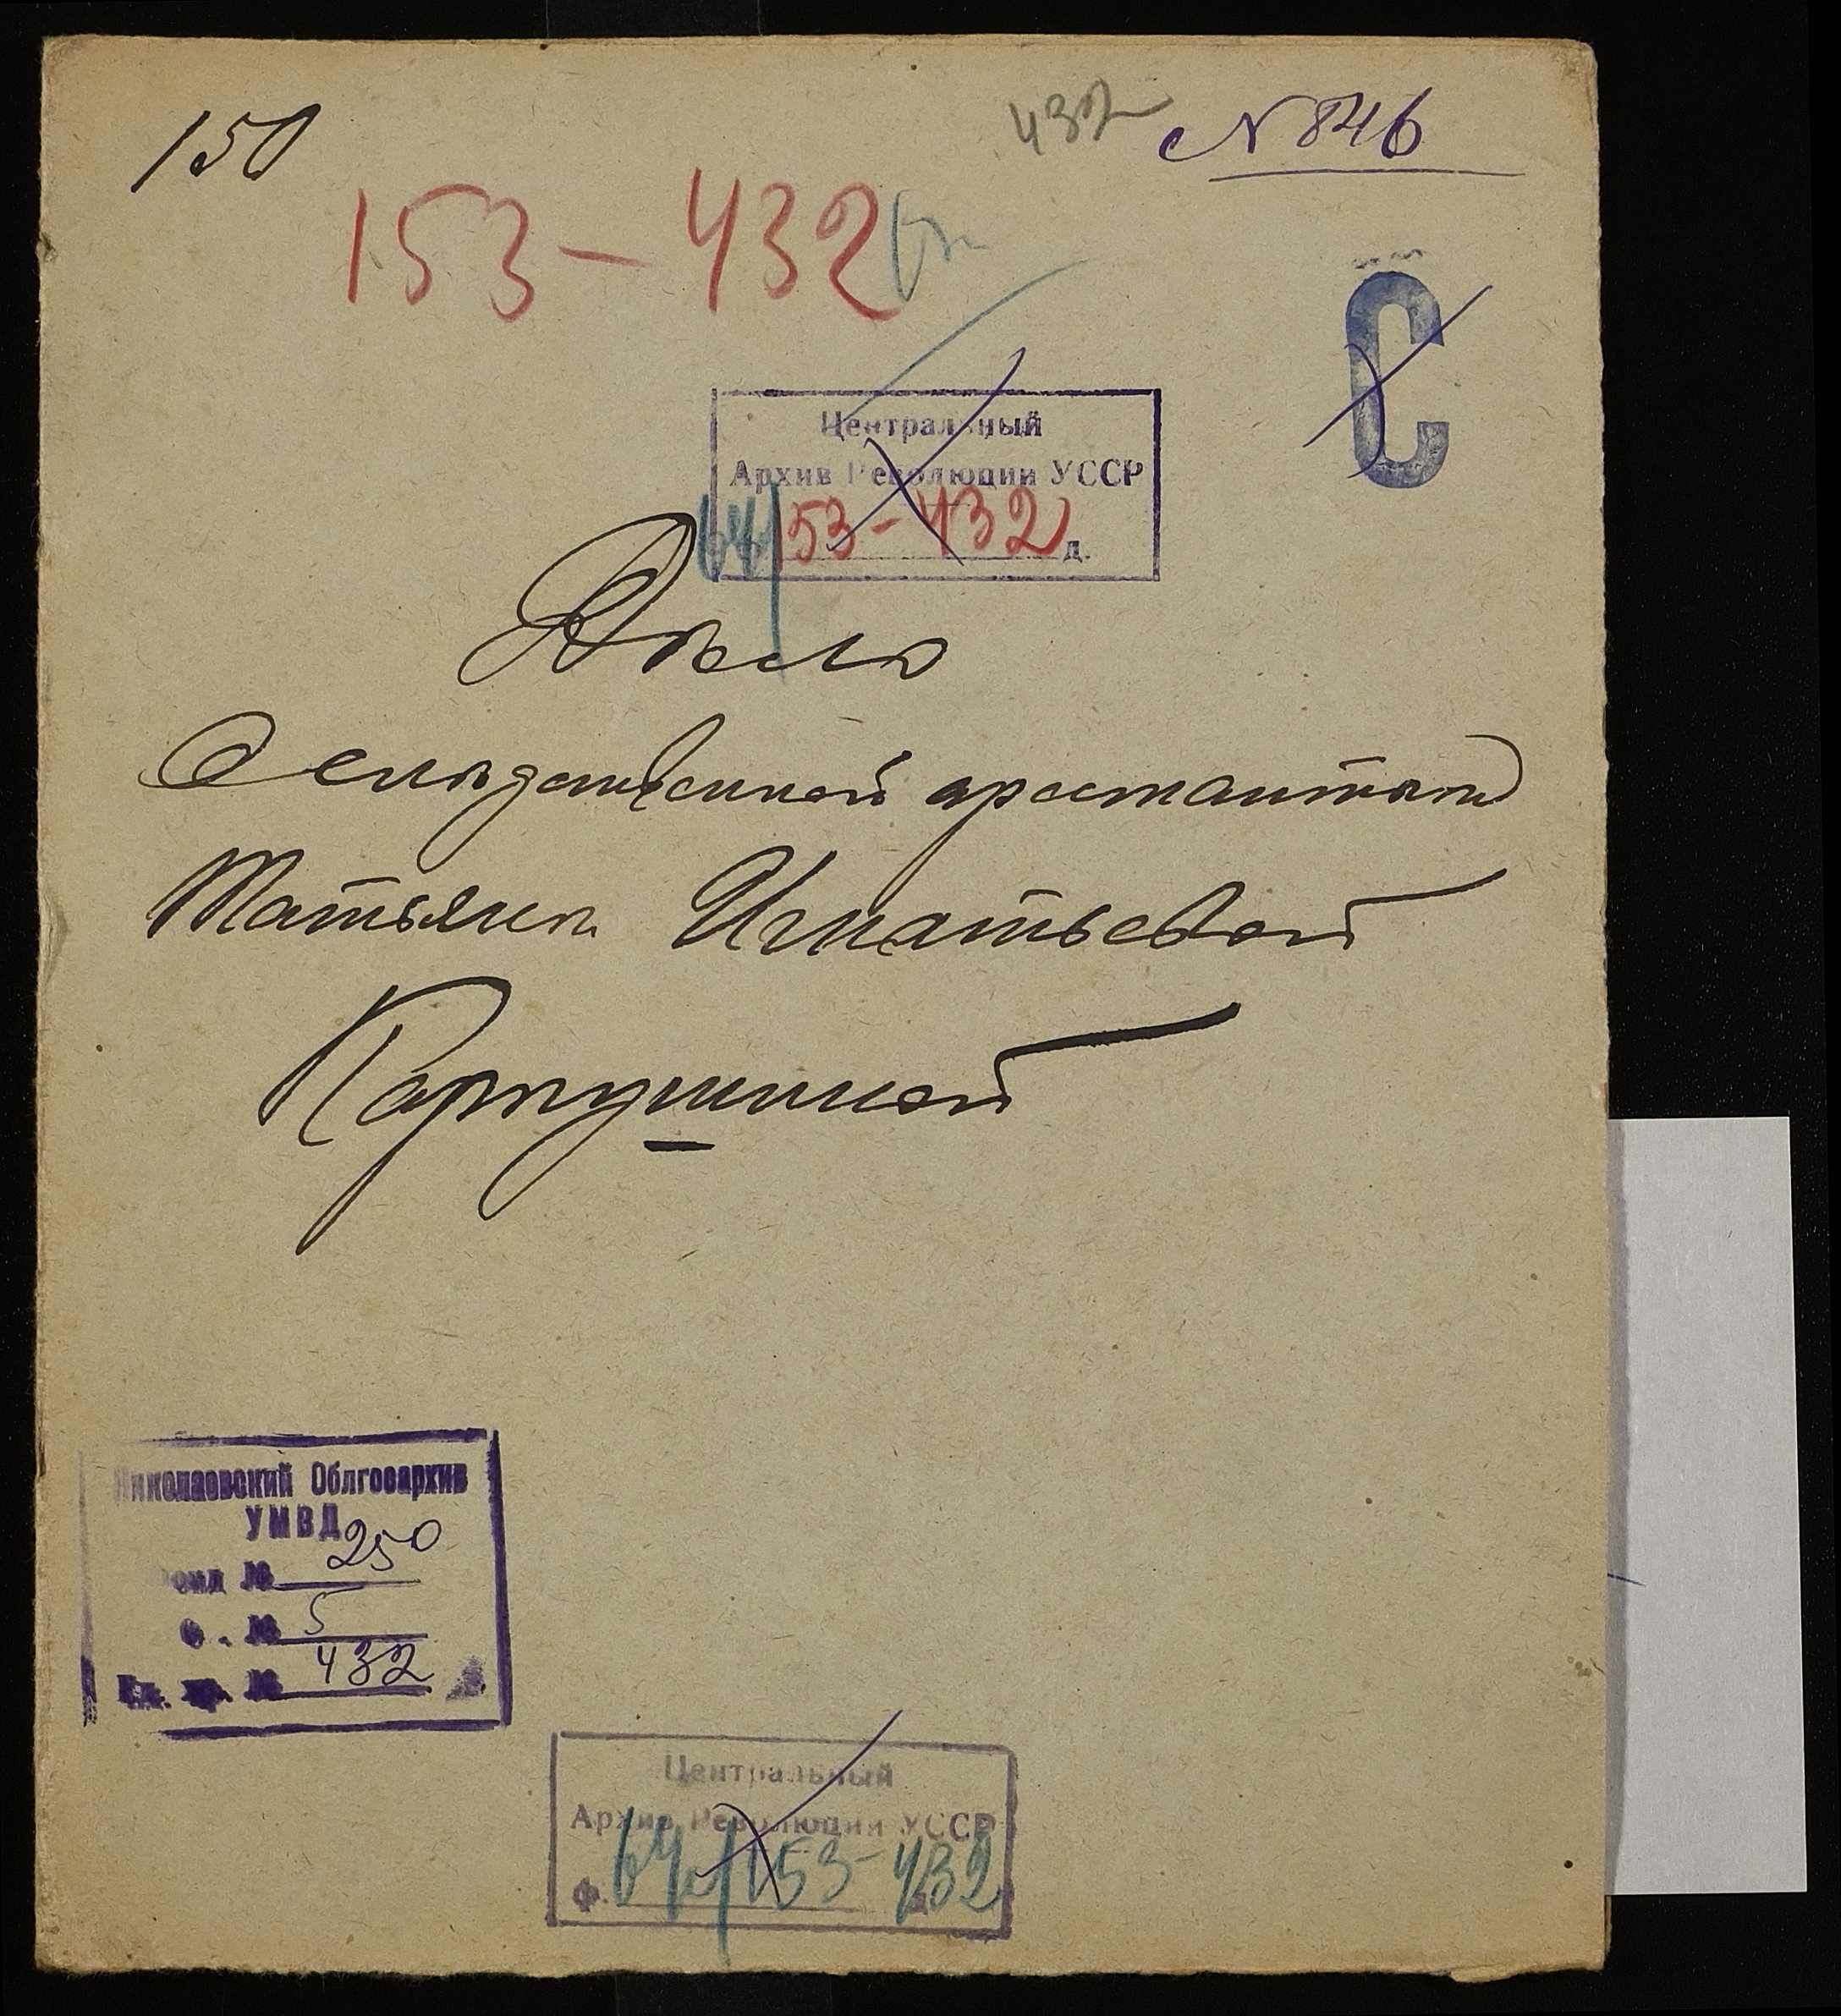 150
432
№ 846
153 – 432
С
Центральный
Архив Революции УССР
64/153 – 432 д.
Дѣло
О слѣдственной арестанткѣ
Татьянѣ Игнатьевой
Карпушиной
Николаевский Облгосархив
УМВД
Фонд № 250
О. № 5
Ед. хр. № 432
Центральный
Архив Революции УССР
ф. 64/153 – 432